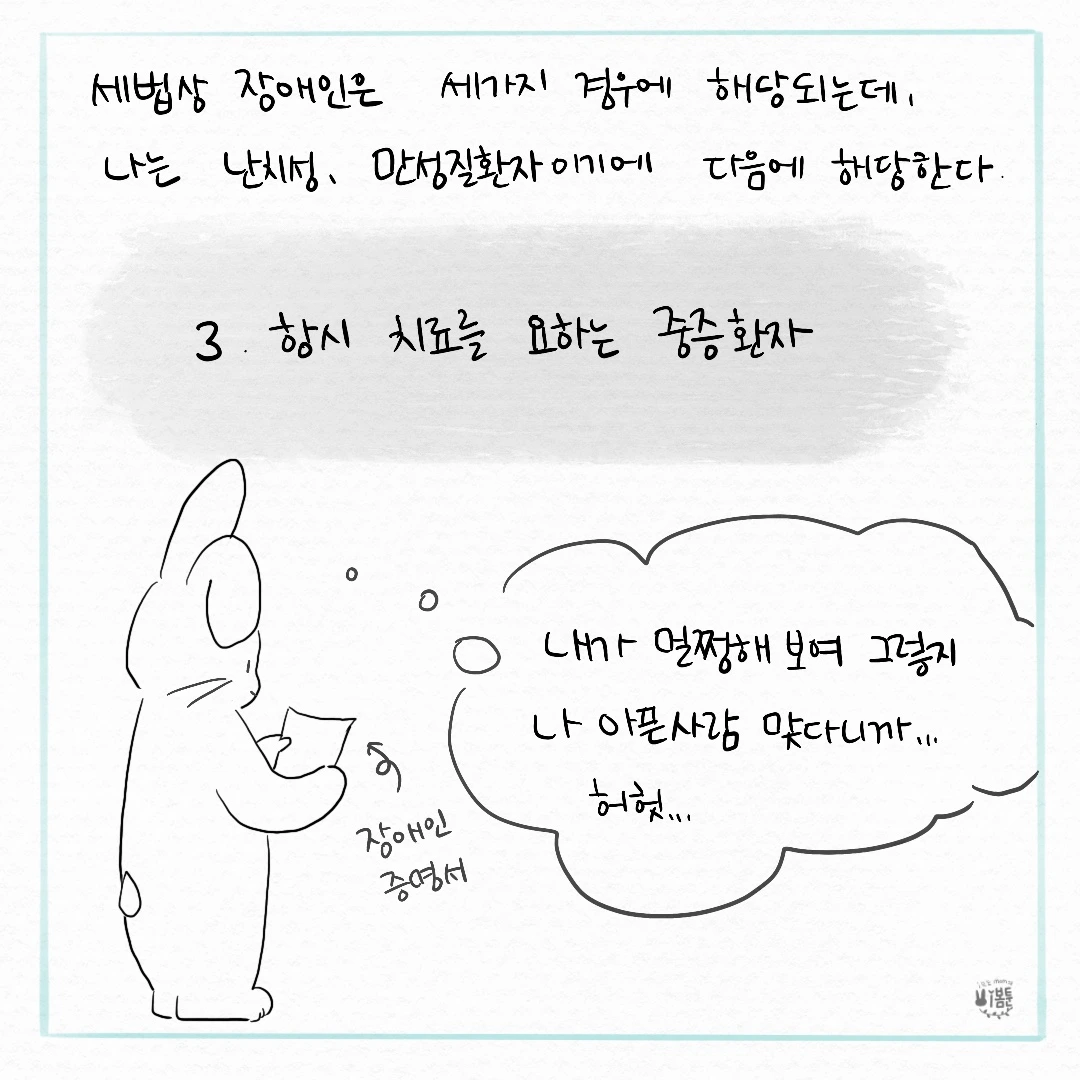 세법상 장애인은 세가지 경우에 해당되는데,
나는 난치성, 만성질환자이기에 다음에 해당한다.
3. 항시 치료를 요하는 중증환자
내가 멀쩡해 보여 그렇지
나 아픈사람 맞다니까...
허헛...
장애인
증명서